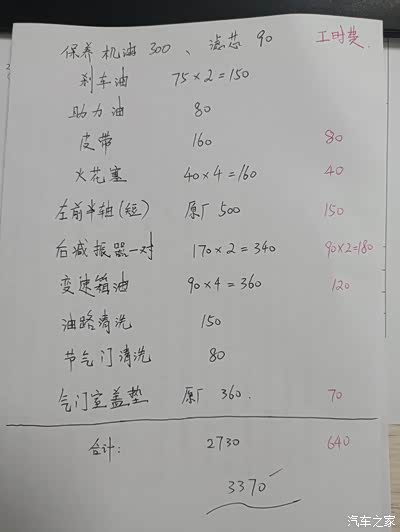 保养机油 300、滤芯 90 工时费
刹车油 75×2=150
助力油 80
皮带 160 80
火花塞 40×4=160 40
左前半轴(短) 原厂 500 150
后减振器一对 170×2=340 90×2=180
变速箱油 90×4=360 120
油路清洗 150
节气门清洗 80
气门室盖垫 原厂 360. 70
合计: 2730 640
3370
汽车之家